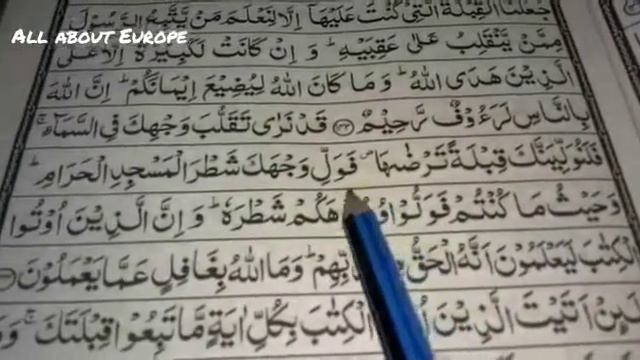 All about Europe
جَعَلْنَا الْقِبْلَةَ الَّتِیْ كُنْتَ عَلَیْهَاۤ اِلَّا لِنَعْلَمَ مَنْ یَّتَّبِعُ الرَّسُوْلَ
مِمَّنْ یَّنْقَلِبُ عَلٰى عَقِبَیْهِ ؕ وَ اِنْ كَانَتْ لَكَبِیْرَةً اِلَّا عَلَى
الَّذِیْنَ هَدَى اللّٰهُ ؕ وَ مَا كَانَ اللّٰهُ لِیُضِیْعَ اِیْمَانَكُمْ ؕ اِنَّ اللّٰهَ
بِالنَّاسِ لَرَءُوْفٌ رَّحِیْمٌ ۝۱۴۳ قَدْ نَرٰى تَقَلُّبَ وَجْهِكَ فِی السَّمَآءِ ۚ
فَلَنُوَلِّیَنَّكَ قِبْلَةً تَرْضٰىهَا ۪ فَوَلِّ وَجْهَكَ شَطْرَ الْمَسْجِدِ الْحَرَامِ ؕ
وَ حَیْثُ مَا كُنْتُمْ فَوَلُّوْا هَكُمْ شَطْرَهٗ ؕ وَ اِنَّ الَّذِیْنَ اُوْتُوا
الْكِتٰبَ لَیَعْلَمُوْنَ اَنَّهُ الْحَقُّ بِّهِمْ ؕ وَ مَا اللّٰهُ بِغَافِلٍ عَمَّا یَعْمَلُوْنَ
لَىِٕنْ اَتَیْتَ الَّذِیْنَ الْكِتٰبَ بِكُلِّ اٰیَةٍ مَّا تَبِعُوْا قِبْلَتَكَ ۚ وَ